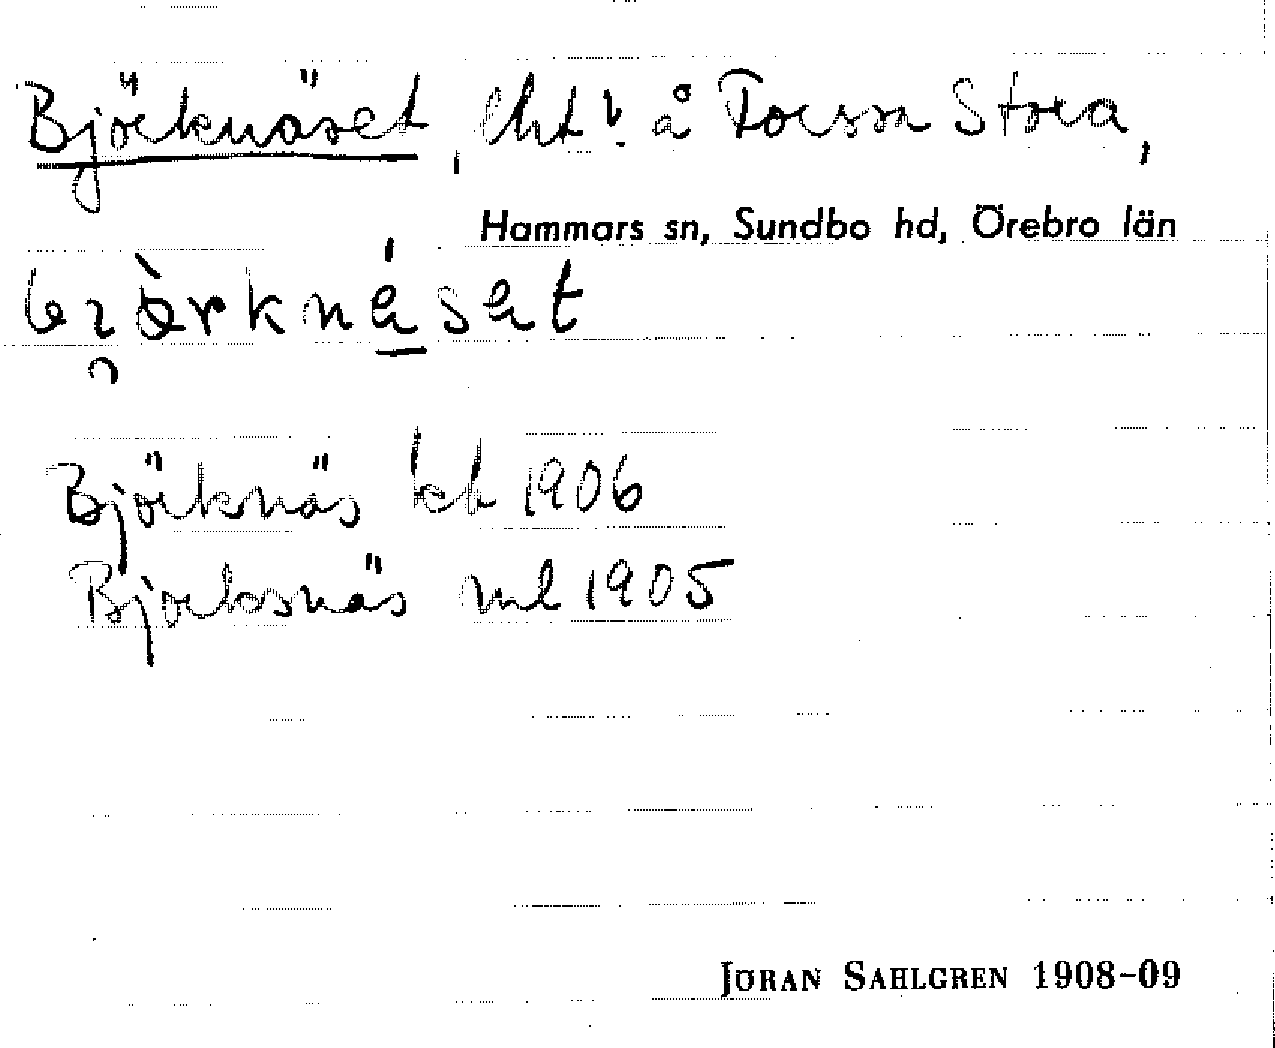 Björknäset, lht. å Forssa Stora,
Hammars sn, Sundbo hd, Örebro län
Björknäs kb 1906
Björksnäs ml 1905
JÖRAN SAHLGREN 1908-09